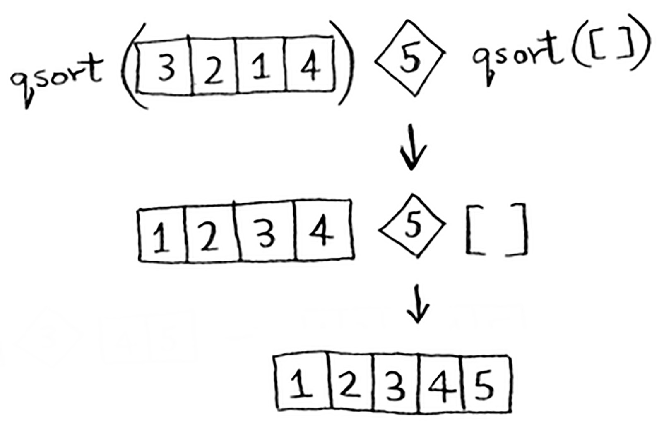 qsort ( 3 2 1 4 ) 5 qsort ([ ])
1 2 3 4 5 [ ]
1 2 3 4 5